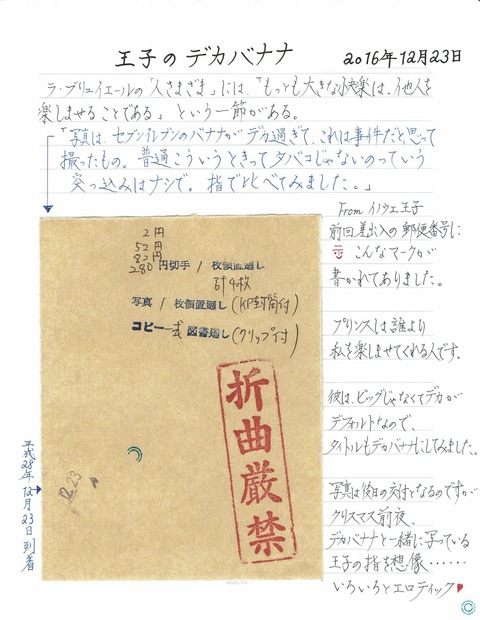 王子の デカバナナ
2016年12月23日
ラ・ブリュイエールの「人さまざま」には、「もっとも大きな快楽は、他人を
楽しませることである」という一節がある。
「写真は、セブンイレブンのバナナがデカ過ぎて、これは事件だと思って
撮ったもの。普通こういうときってタバコじゃないのっていう
突っ込みはナシで。指で比べてみました。。」
From イノウエ王子
前回差出人の郵便番号に
こんなマークが
書かれてありました。
プリンスは誰より
私を楽しませてくれる人です。
彼は、ビッグじゃなくてデカが
デフォルトなので、
タイトルもデカバナナにしてみました。
写真は後日の交付となるのですが
クリスマス前夜、
デカバナナと一緒に写っている
王子の指を想像……
いろいろとエロティック♥
2円
52円
82円
280円切手 / 枚領置廻し
計4枚
写真 / 枚領置廻し(KP封筒付)
コピー 一式 図書廻し(クリップ付)
折曲厳禁
12.23
平成28年12月23日到着